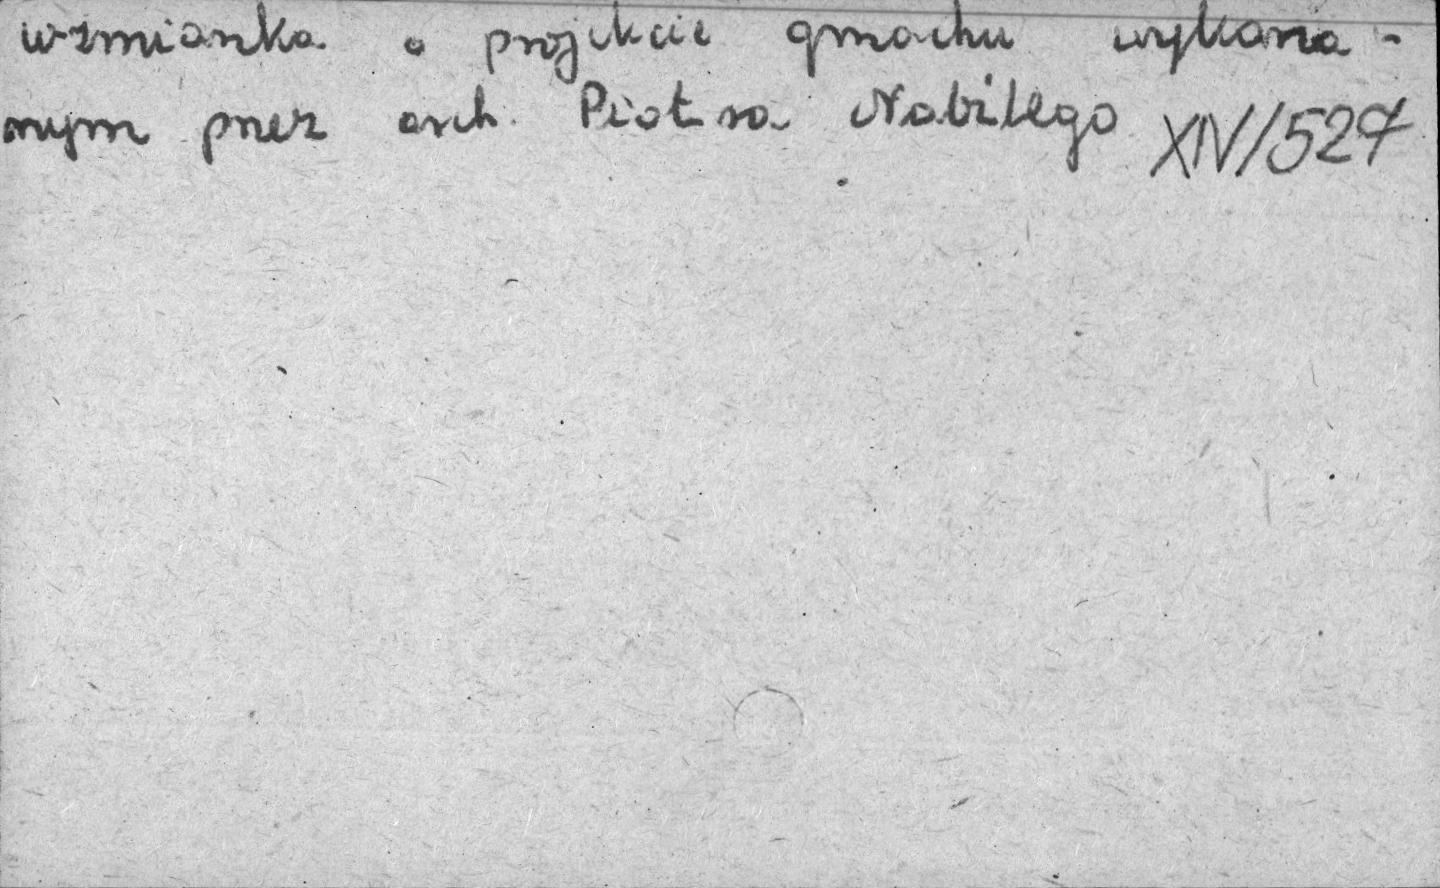 wzmianka o projekcie gmachu wykona-
nym przez arch. Piotra Nobilego XIV/527